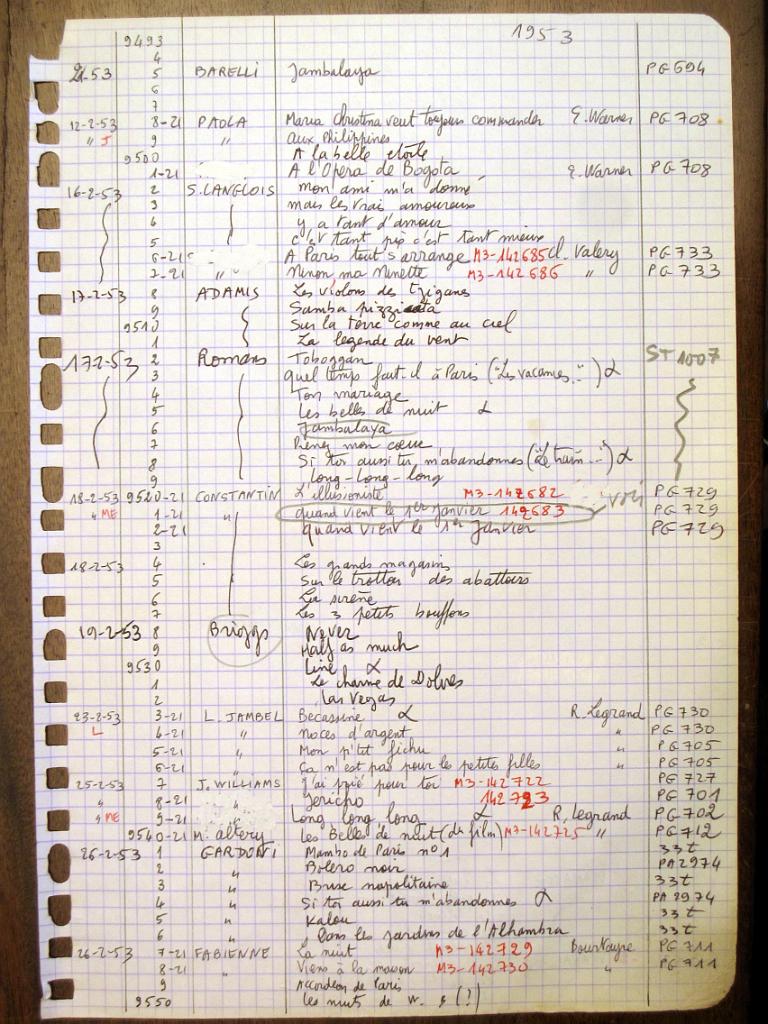 1953
9493
4
21-53 5 BARELLI Jambalaya PG 694
6
7
12-2-53 8-21 PAOLA Maria Christina veut toujours commander E. Warner PG 708
" J 9 " aux Philippines
9500 A la belle etoile
1-21 A l'Opera de Bogota E. Warner PG 708
16-2-53 2 S. LANGLOIS mon ami m'a donné
3 mais les vrais amoureux
4 y a tant d'amour
5 c'est tant pis c'est tant mieux
6-21 A Paris tout s'arrange M3-142685 cl. Valery PG 733
7-21 " Ninon ma Ninette M3-142686 " PG 733
17-2-53 8 ADAMIS Les violons des tziganes
9 Samba pizzicata
9510 Sur la terre comme au ciel
1 La legende du vent
17-2-53 2 Romans Toboggan ST 1007
3 Quel temps fait-il à Paris ("Les vacances..") α
4 Ton mariage
5 Les belles de nuit α
6 Jambalaya
7 Prenez mon coeur
8 Si toi aussi tu m'abandonnes ("Le train...") α
9 Long-Long-Long
18-2-53 9520-21 CONSTANTIN L'illusioniste M3-142682 PG 729
" ME 1-21 " quand vient le 1er janvier 142683 voir PG 729
2-21 quand vient le 1er janvier PG 729
3
18-2-53 4 Les grands magasins
5 Sur le trottoir des abattoirs
6 La sirène
7 Les 3 petits bouffons
19-2-53 8 Briggs Never
9 Half as much
9530 Line α
1 Le charme de Dolores
2 Las Vegas
23-2-53 3-21 L. JAMBEL Becassine α R. Legrand PG 730
L 4-21 " Noces d'argent " PG 730
5-21 " Mon p'tit fichu " PG 705
6-21 " Ca n'est pas pour les petites filles " PG 705
25-2-53 7 J. WILLIAMS J'ai prié pour toi M3-142722 PG 727
" 8-21 " Jericho 142723 PG 701
" ME 9-21 " Long long long α R. Legrand PG 702
9540-21 M. altery Les Belles de nuit (du film) M3-142725 " PG 712
26-2-53 1 GARDONI Mambo de Paris n° 1 33t
2 " Bolero noir PA 2974
3 " Brise napolitaine 33t
4 " Si toi aussi tu m'abandonnes α PA 2974
5 " Kalou 33t
6 " Dans les jardins de l'Alhambra 33t
26-2-53 7-21 FABIENNE La nuit M3-142729 Bourtayre PG 711
8-21 " Viens à la maison M3-142730 " PG 711
9 Accordeon de Paris
9550 les nuits de W. s (?)